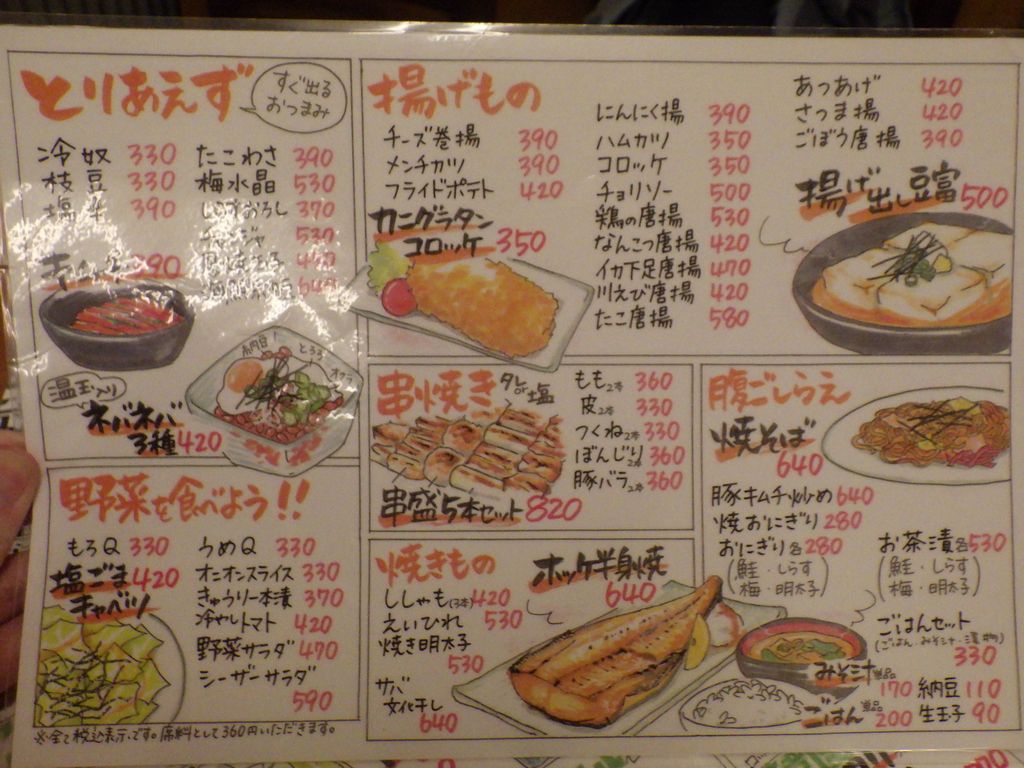 とりあえず
すぐ出る
おつまみ
冷奴 330
枝豆 330
390
390
たこわさ 390
梅水晶 530
しらすおろし 370
530
温玉入り
納豆
とろろ
オクラ
ネバネバ
3種 420
野菜を食べよう!!
もろQ 330
塩ごま 420
キャベツ
うめQ 330
オニオンスライス 330
きゅうり一本漬 370
冷やしトマト 420
野菜サラダ 470
シーザーサラダ
590
※全て税込表示です。席料として360円いただきます。
揚げもの
チーズ巻揚 390
メンチカツ 390
フライドポテト 420
カニグラタン
コロッケ 350
にんにく揚 390
ハムカツ 350
コロッケ 350
チョリソー 500
鶏の唐揚 530
なんこつ唐揚 420
イカ下足唐揚 470
川えび唐揚 420
たこ唐揚 580
あつあげ 420
さつま揚 420
ごぼう唐揚 390
揚げ出し豆富 500
串焼き タレor塩
もも2本 360
皮2本 330
つくね2本 330
ぼんじり2本 360
豚バラ2本 360
串盛5本セット 820
焼きもの
ししゃも(3本) 420
えいひれ 530
焼き明太子
530
サバ
文化干し
640
ホッケ半身焼
640
腹ごしらえ
焼そば
640
豚キムチ炒め 640
焼おにぎり 280
おにぎり各280
(鮭・しらす
梅・明太子)
お茶漬各530
(鮭・しらす
梅・明太子)
ごはんセット
(ごはん・みそ汁・漬物)
330
みそ汁単品
170
ごはん単品
200
納豆 110
生玉子 90